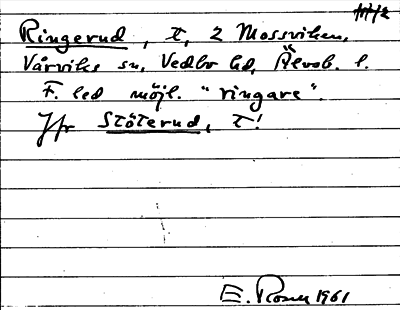 Ringerud, t, 2 Mossviken,
Vårviks sn, Vedbo hd, Älvsb. l.
F. led möjl. "ringare".
Jfr Stöterud, t!
E. Rosén 1961